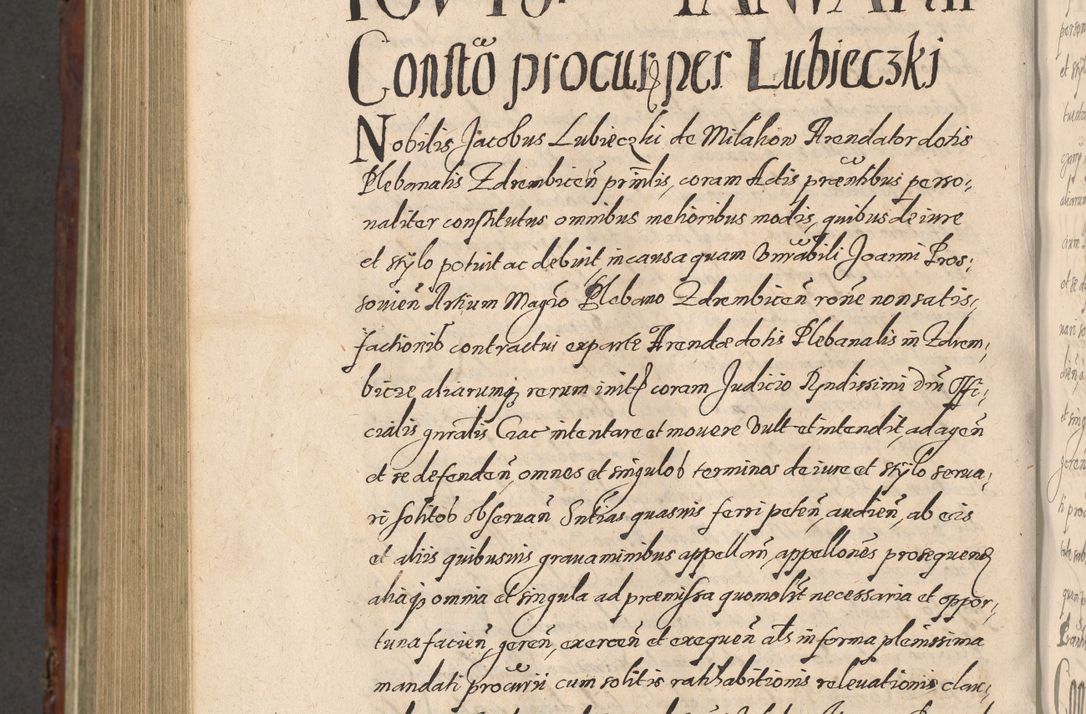 Constõ procur per Lubieczki
Nobilis Jacobus Lubieczki de Milahow Arendator dotis
Plebanalis Zdrembiceñ prinlis, coram Actis præntibus perso-
naliter constitutus omnibus melioribus modis, quibus de iure
et stylo potuit ac debuit, in causa quam Vnrabili Joanni Pros-
sovień Artium Magro Plebano Zdrembiceñ rone non satis-
factionis contractus ex parte Arendæ dotis Plebanalis in Zdrem-
bicze aliarumq rerum init coram Judicio Rndissimi Dni Offi-
cialis gnralis Crac intentare et mouere Vult et intendit, ad agen̄
et se defenden̄, omnes et singulos terminos de iure et stylo serua-
ri solitos obseruan̄ Sntias quasuis ferri peten̄, audien̄, ab eis
et aliis quibusuis grauaminibus appellan̄, appellones prosequend
aliaq omnia et singula ad præmissa quomolbt necessaria et oppor-
tuna facien̄, geren̄, exercen̄ et exequen̄ als in forma plenissima
mandati procurii cum solitis ratihabitionis releuationis clau-